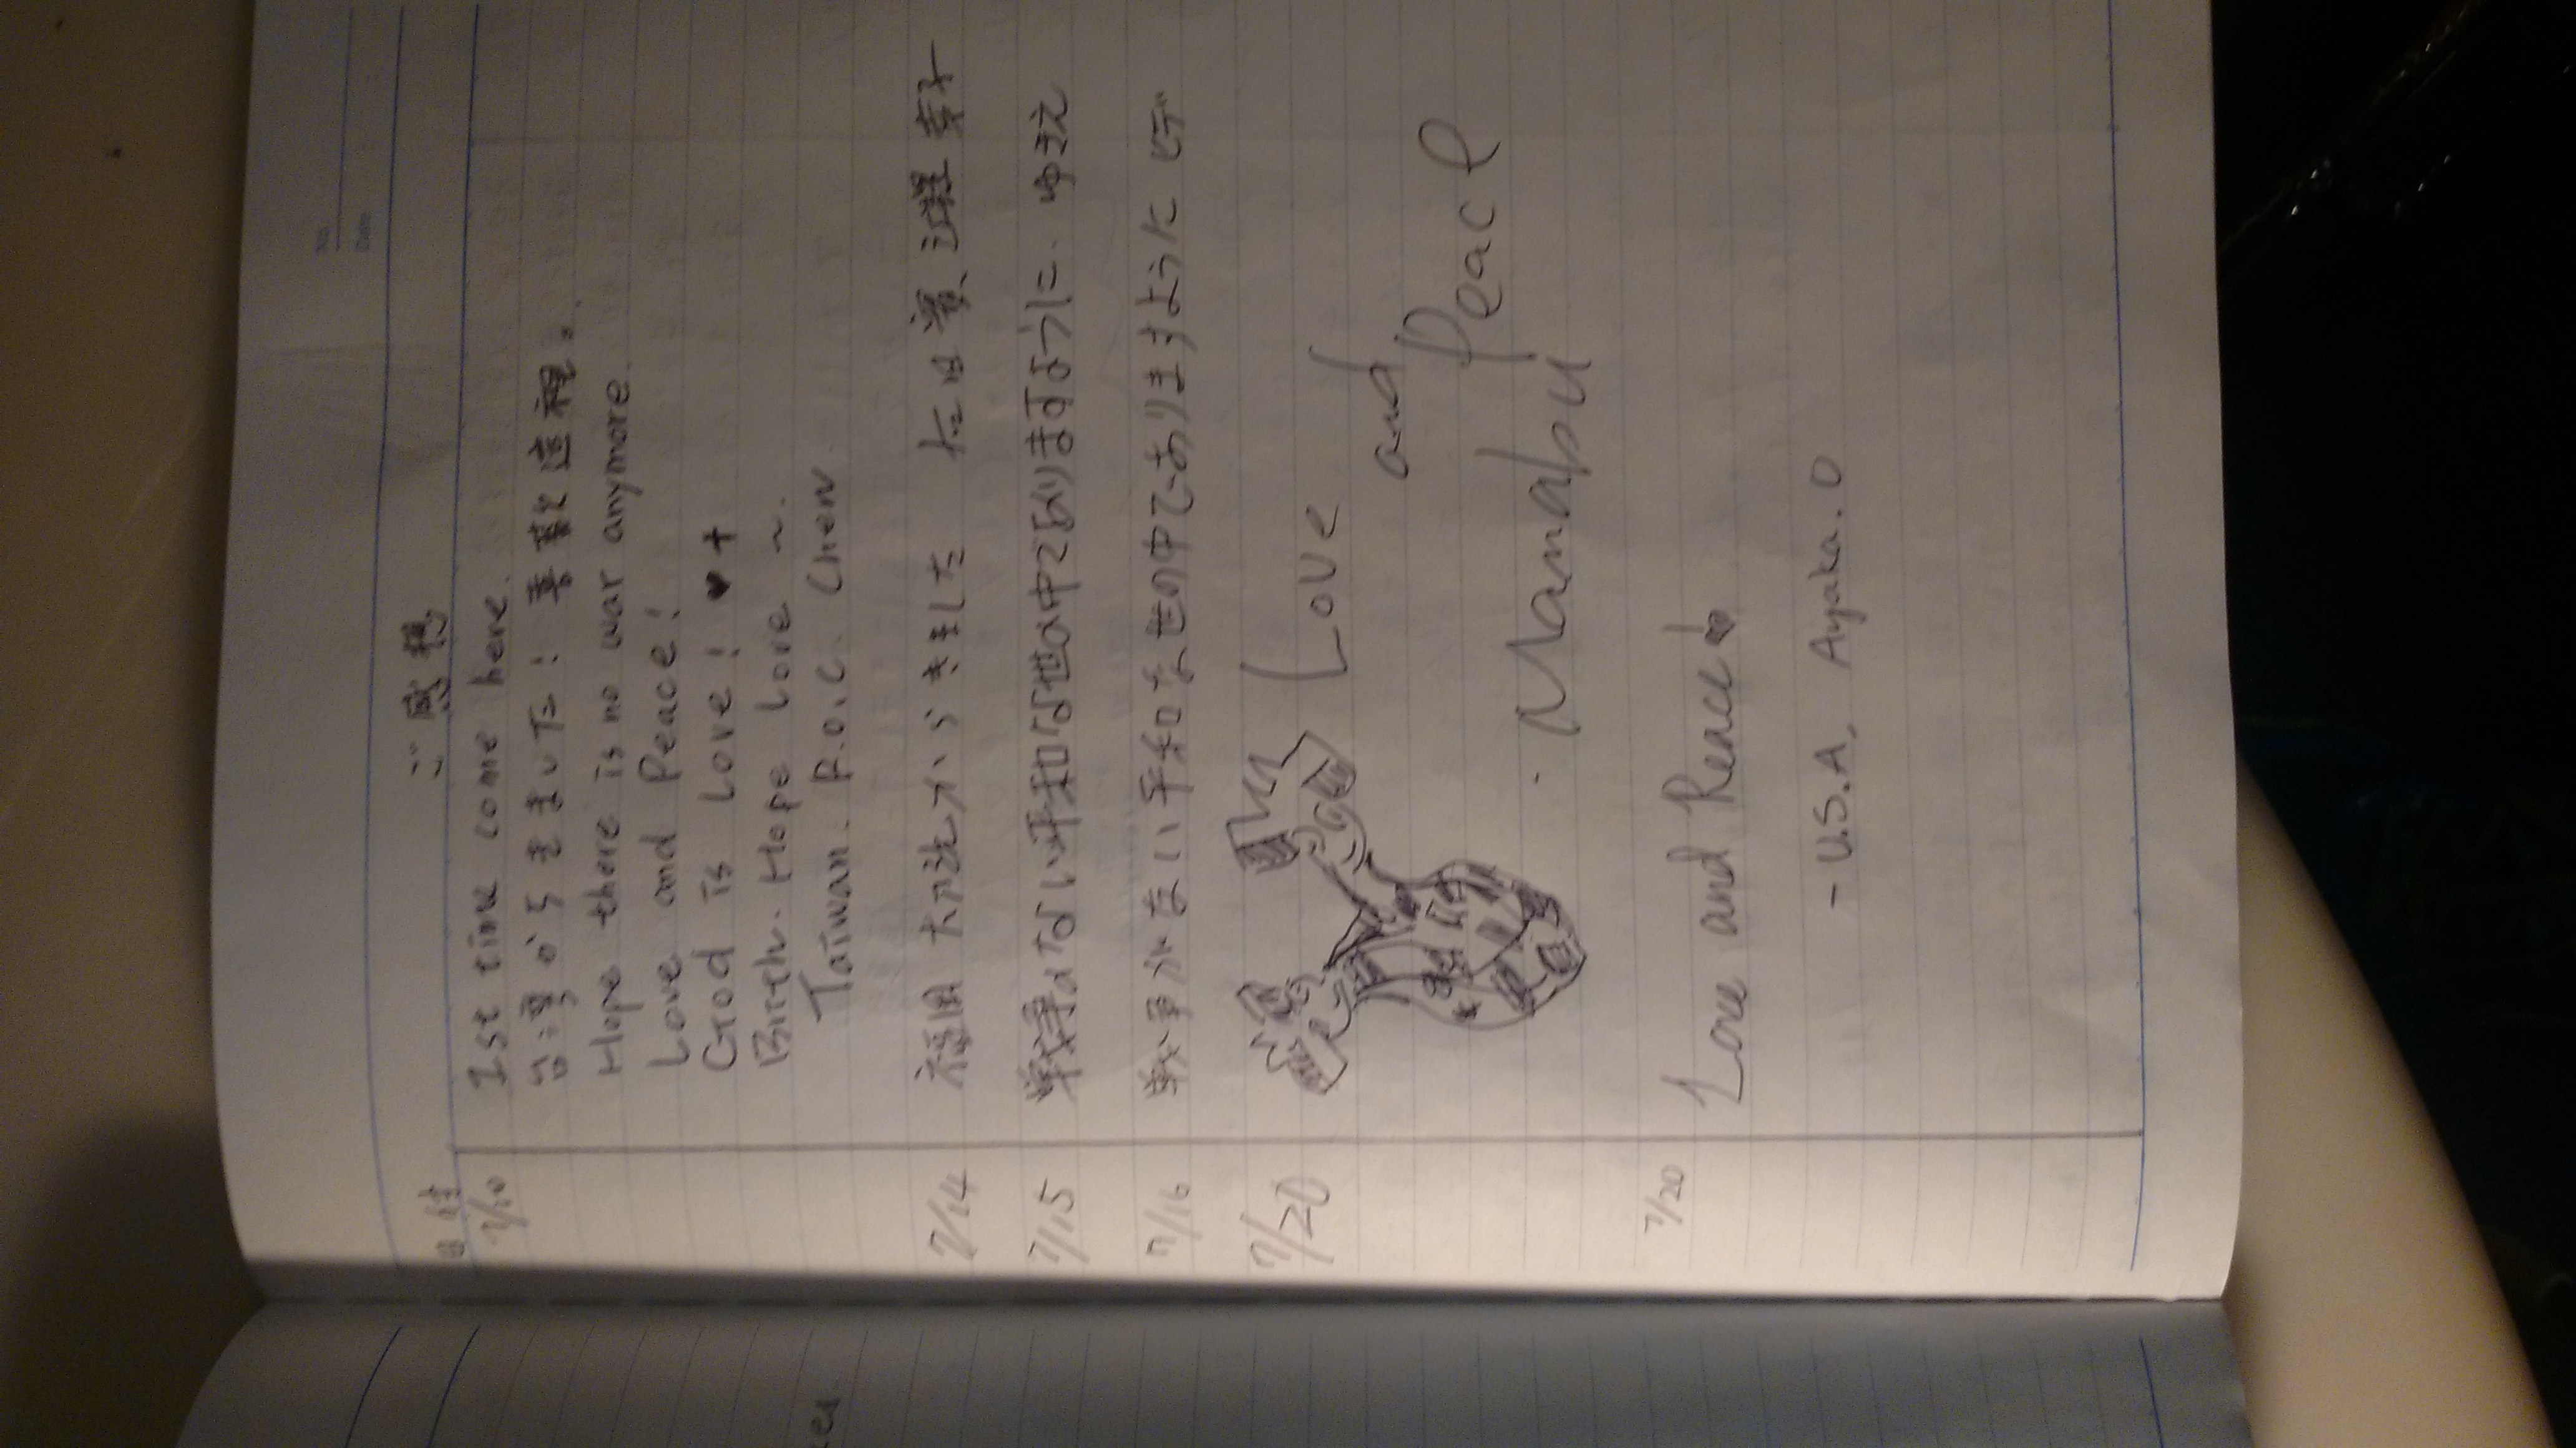 No.
Date
ご感想
日付
7/10
1st time come here.
台湾から きました!
Hope there is no war anymore.
Love and Peace!
God is Love! ♥ +
Birth. Hope Love ~.
Taiwan. R.O.C. Chen
7/14 福岡 から きました
7/15 戦争のない平和な世の中になりますように. ゆきえ
7/16 戦争がない平和な世の中でありますように ヒデ
7/20 Love
and
Peace
Manabu
7/20 Love and Peace
- U.S.A, Ayaka. O